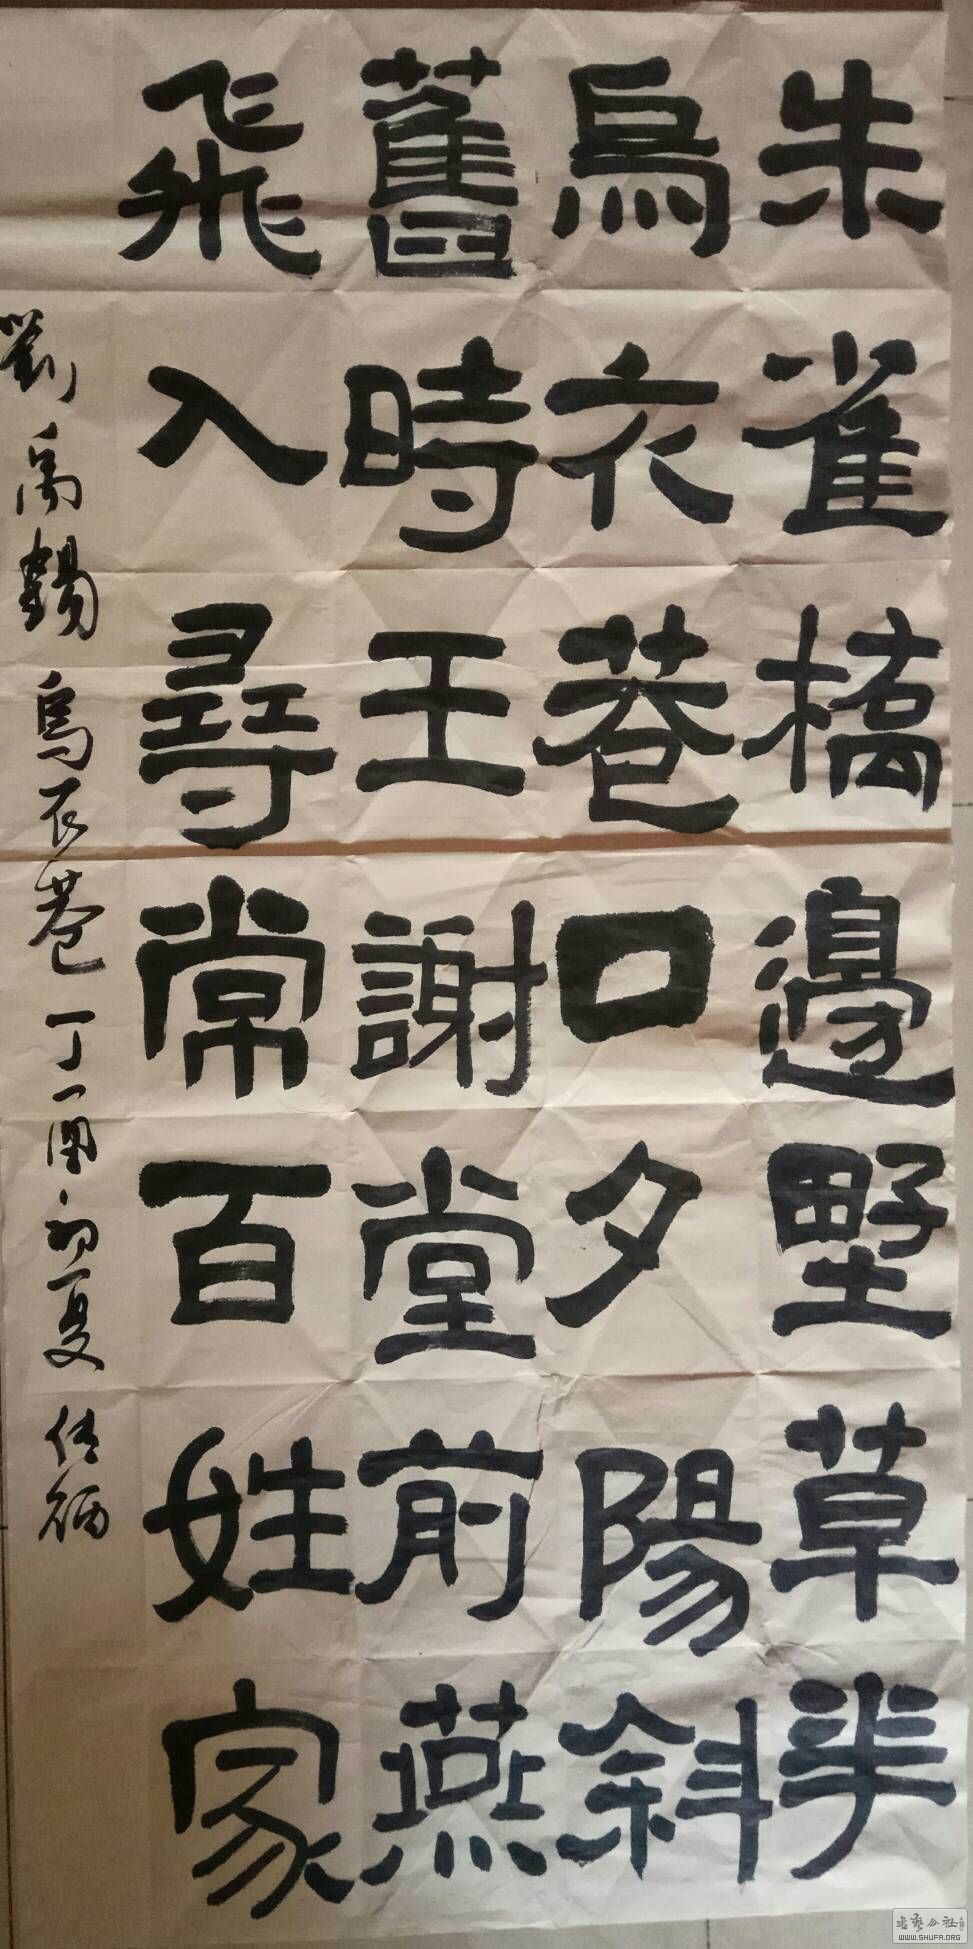 朱雀橋邊野草華
烏衣巷口夕陽斜
舊時王謝堂前燕
飛入尋常百姓家
劉禹錫烏衣巷丁酉初夏
WWW.SHUFA.ORG